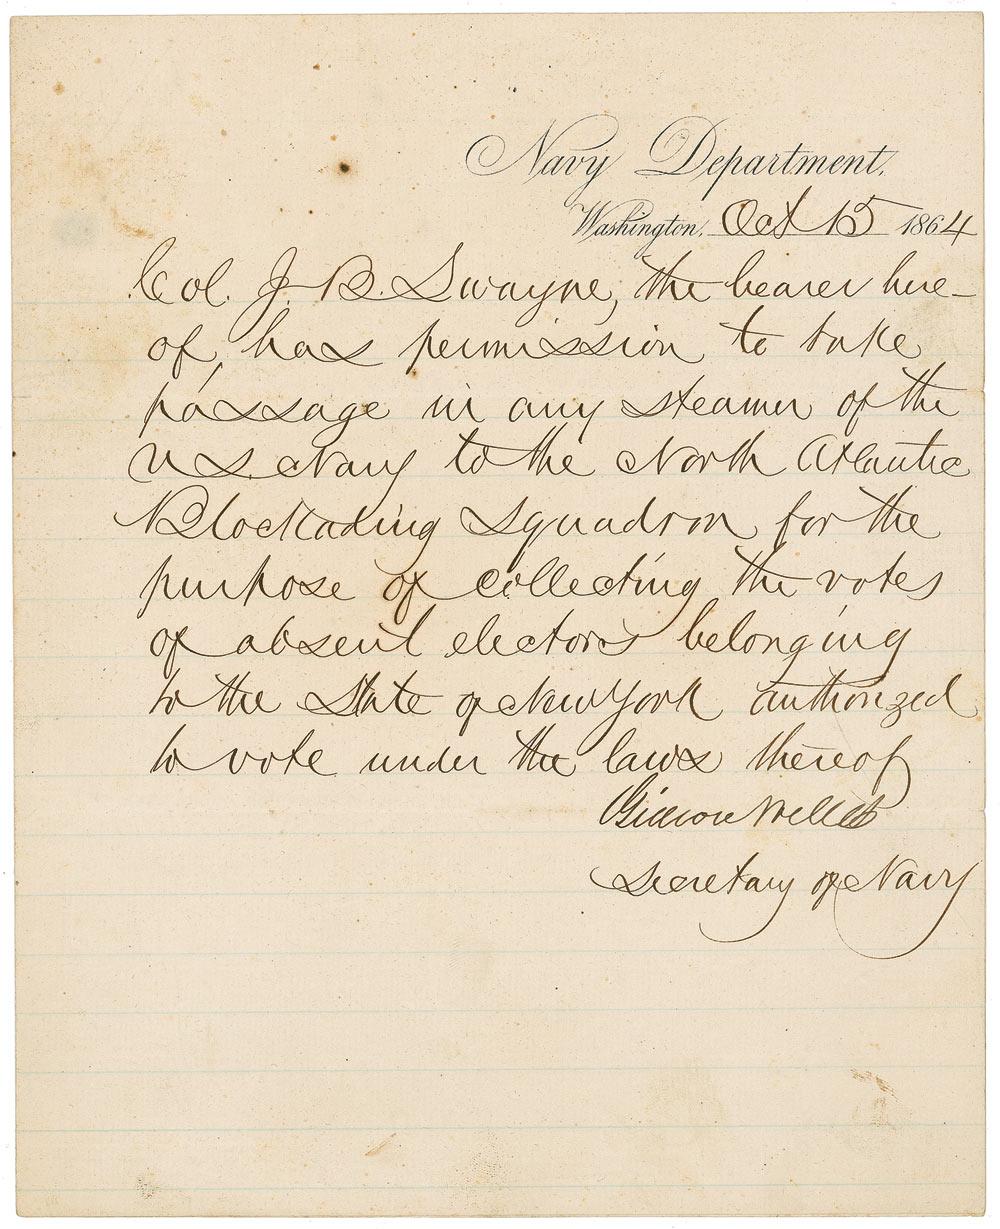 Navy Department,
Washington, Oct 15 1864
Col. J. B. Swayne, the bearer here-
of, has permission to take
passage in any steamer of the
U S. Navy to the North Atlantic
Blockading Squadron for the
purpose of collecting the votes
of absent electors belonging
to the State of New York authorized
to vote under the laws thereof
Gideon Welles
Secretary of Navy